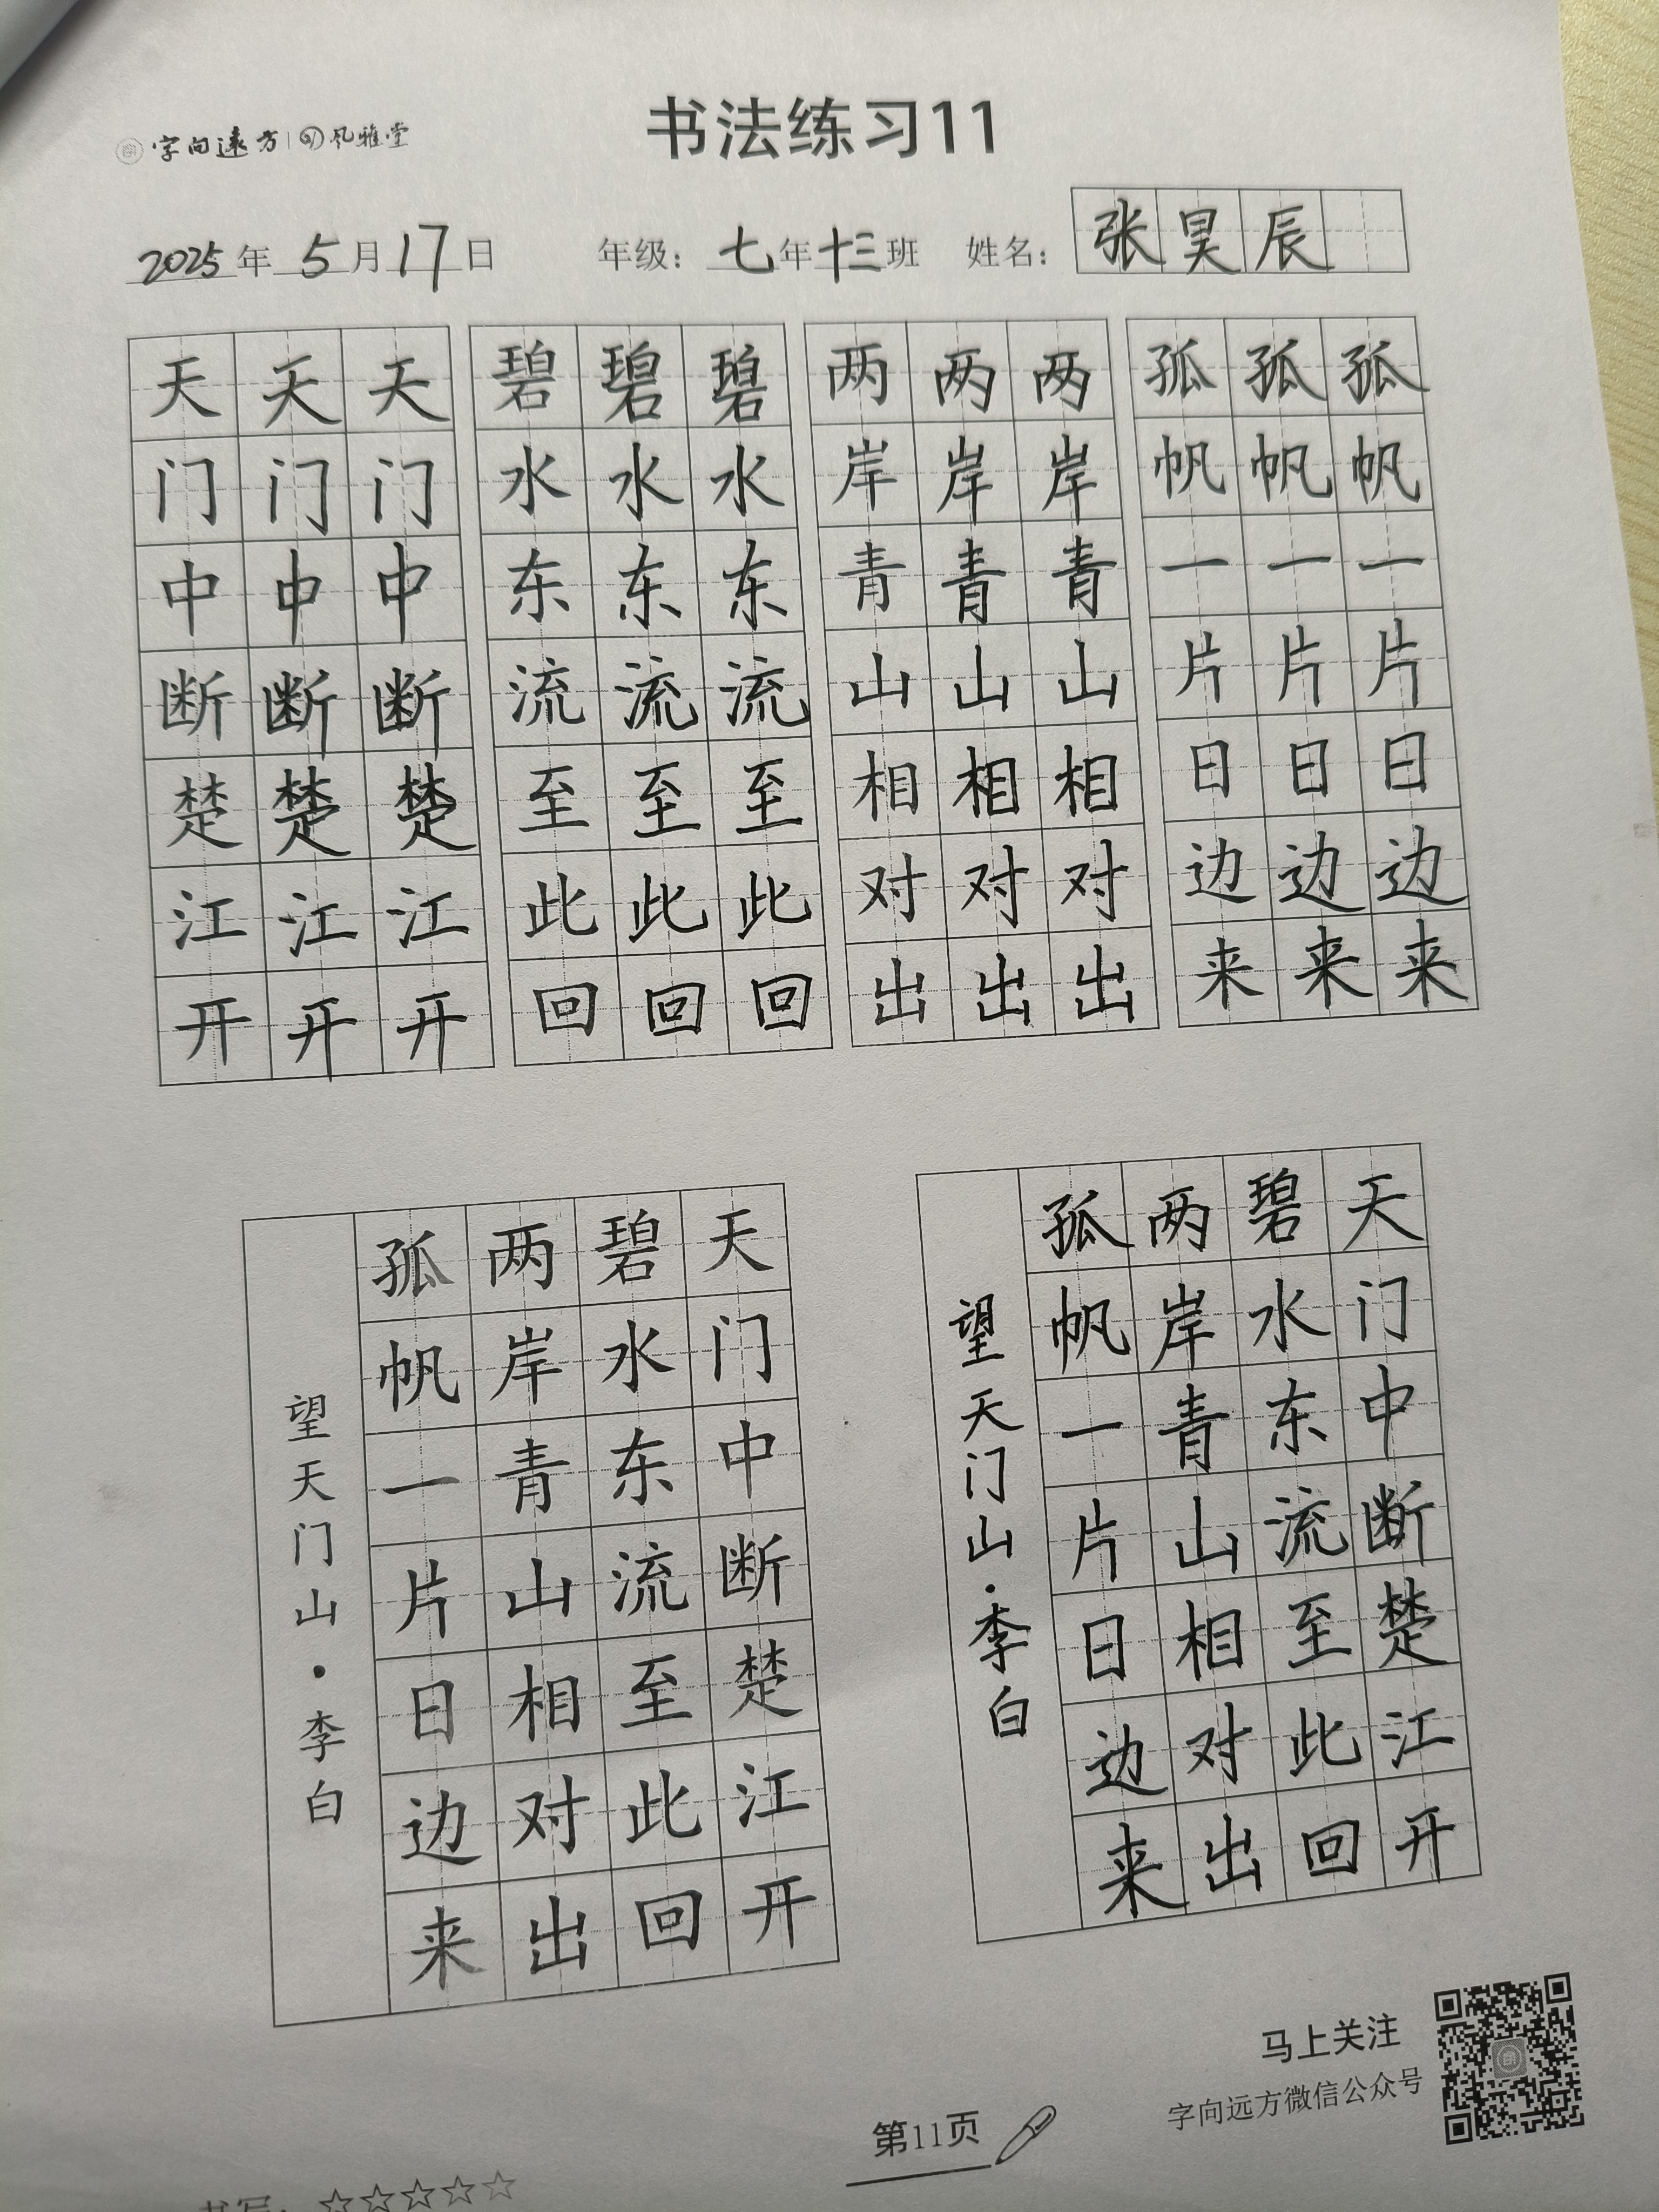 字向远方 风雅堂
书法练习11
2025年5月17日 年级:七年十三班 姓名:张昊辰
天天天 碧碧碧 两两两 孤孤孤
门门门 水水水 岸岸岸 帆帆帆
中中中 东东东 青青青 一一一
断断断 流流流 山山山 片片片
楚楚楚 至至至 相相相 日日日
江江江 此此此 对对对 边边边
开开开 回回回 出出出 来来来
天门中断楚江开
碧水东流至此回
两岸青山相对出
孤帆一片日边来
望天门山·李白
天门中断楚江开
碧水东流至此回
两岸青山相对出
孤帆一片日边来
望天门山·李白
马上关注
字向远方微信公众号
第11页
书写:☆☆☆☆☆